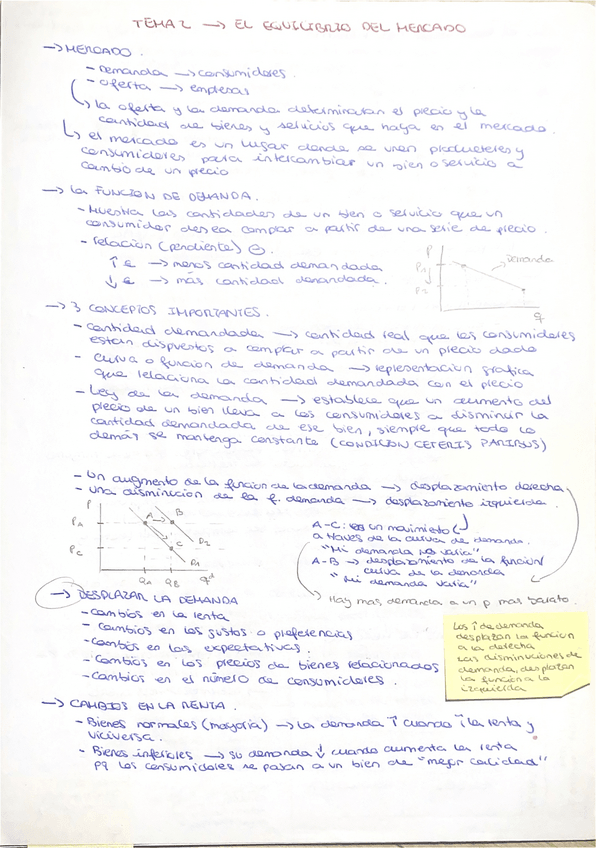 TEMA 2 → EL EQUILIBRIO DEL MERCADO
→ MERCADO.
- Demanda → consumidores.
- Oferta → empresas
↳ la oferta y la demanda determinaran el precio y la
cantidad de bienes y servicios que haya en el mercado.
↳ el mercado es un lugar donde se unen productores y
consumidores para intercambiar un bien o servicio a
cambio de un precio
→ La FUNCION DE DEMANDA.
- Muestra las cantidades de un bien o servicio que un
consumidor desea comprar a partir de una serie de precio.
- relacion (pendiente) ⊖.
↑ € → menos cantidad demandada
↓ € → más cantidad demandada.
P
Demanda
q
→ 3 CONCEPTOS IMPORTANTES.
- cantidad demandada → cantidad real que los consumidores
estan dispuestos a comprar a partir de un precio dado
- curva o funcion de demanda → representacion grafica
que relaciona la cantidad demandada con el precio
- Ley de la demanda → establece que un aumento del
precio de un bien lleva a los consumidores a disminuir la
cantidad demandada de ese bien, siempre que todo lo
demás se mantenga constante (CONDICION CETERIS PARIBUS)
- Un augmento de la funcion de la demanda → desplazamiento derecha
- una disminucion de la f. demanda → desplazamiento izquierda.
P
PA
PC
A → B
C
D2
D1
QA QB qd
A-C: es un movimiento
a traves de la curva de demanda.
"Mi demanda no varia"
A-B → desplazamiento de la funcion/
curva de la demanda
"Mi demanda varia"
↳ Hay mas demanda a un p mas barato.
→ DESPLAZAR LA DEMANDA
- cambios en la renta
- cambios en los gustos o preferencias
- cambios en las expectativas.
- cambios en los precios de bienes relacionados
- cambios en el número de consumidores.
Los ↑ de demanda
desplazan la funcion
a la derecha
Las disminuciones de
demanda, desplazan
la función a la
izquierda
→ CAMBIOS EN LA RENTA.
- Bienes normales (mayoria) → la demanda ↑ cuando ↑ la renta y
viciversa.
- Bienes inferiores → su demanda ↓ cuando aumenta la renta
pq los consumidores se pasan a un bien de "mejor calidad"